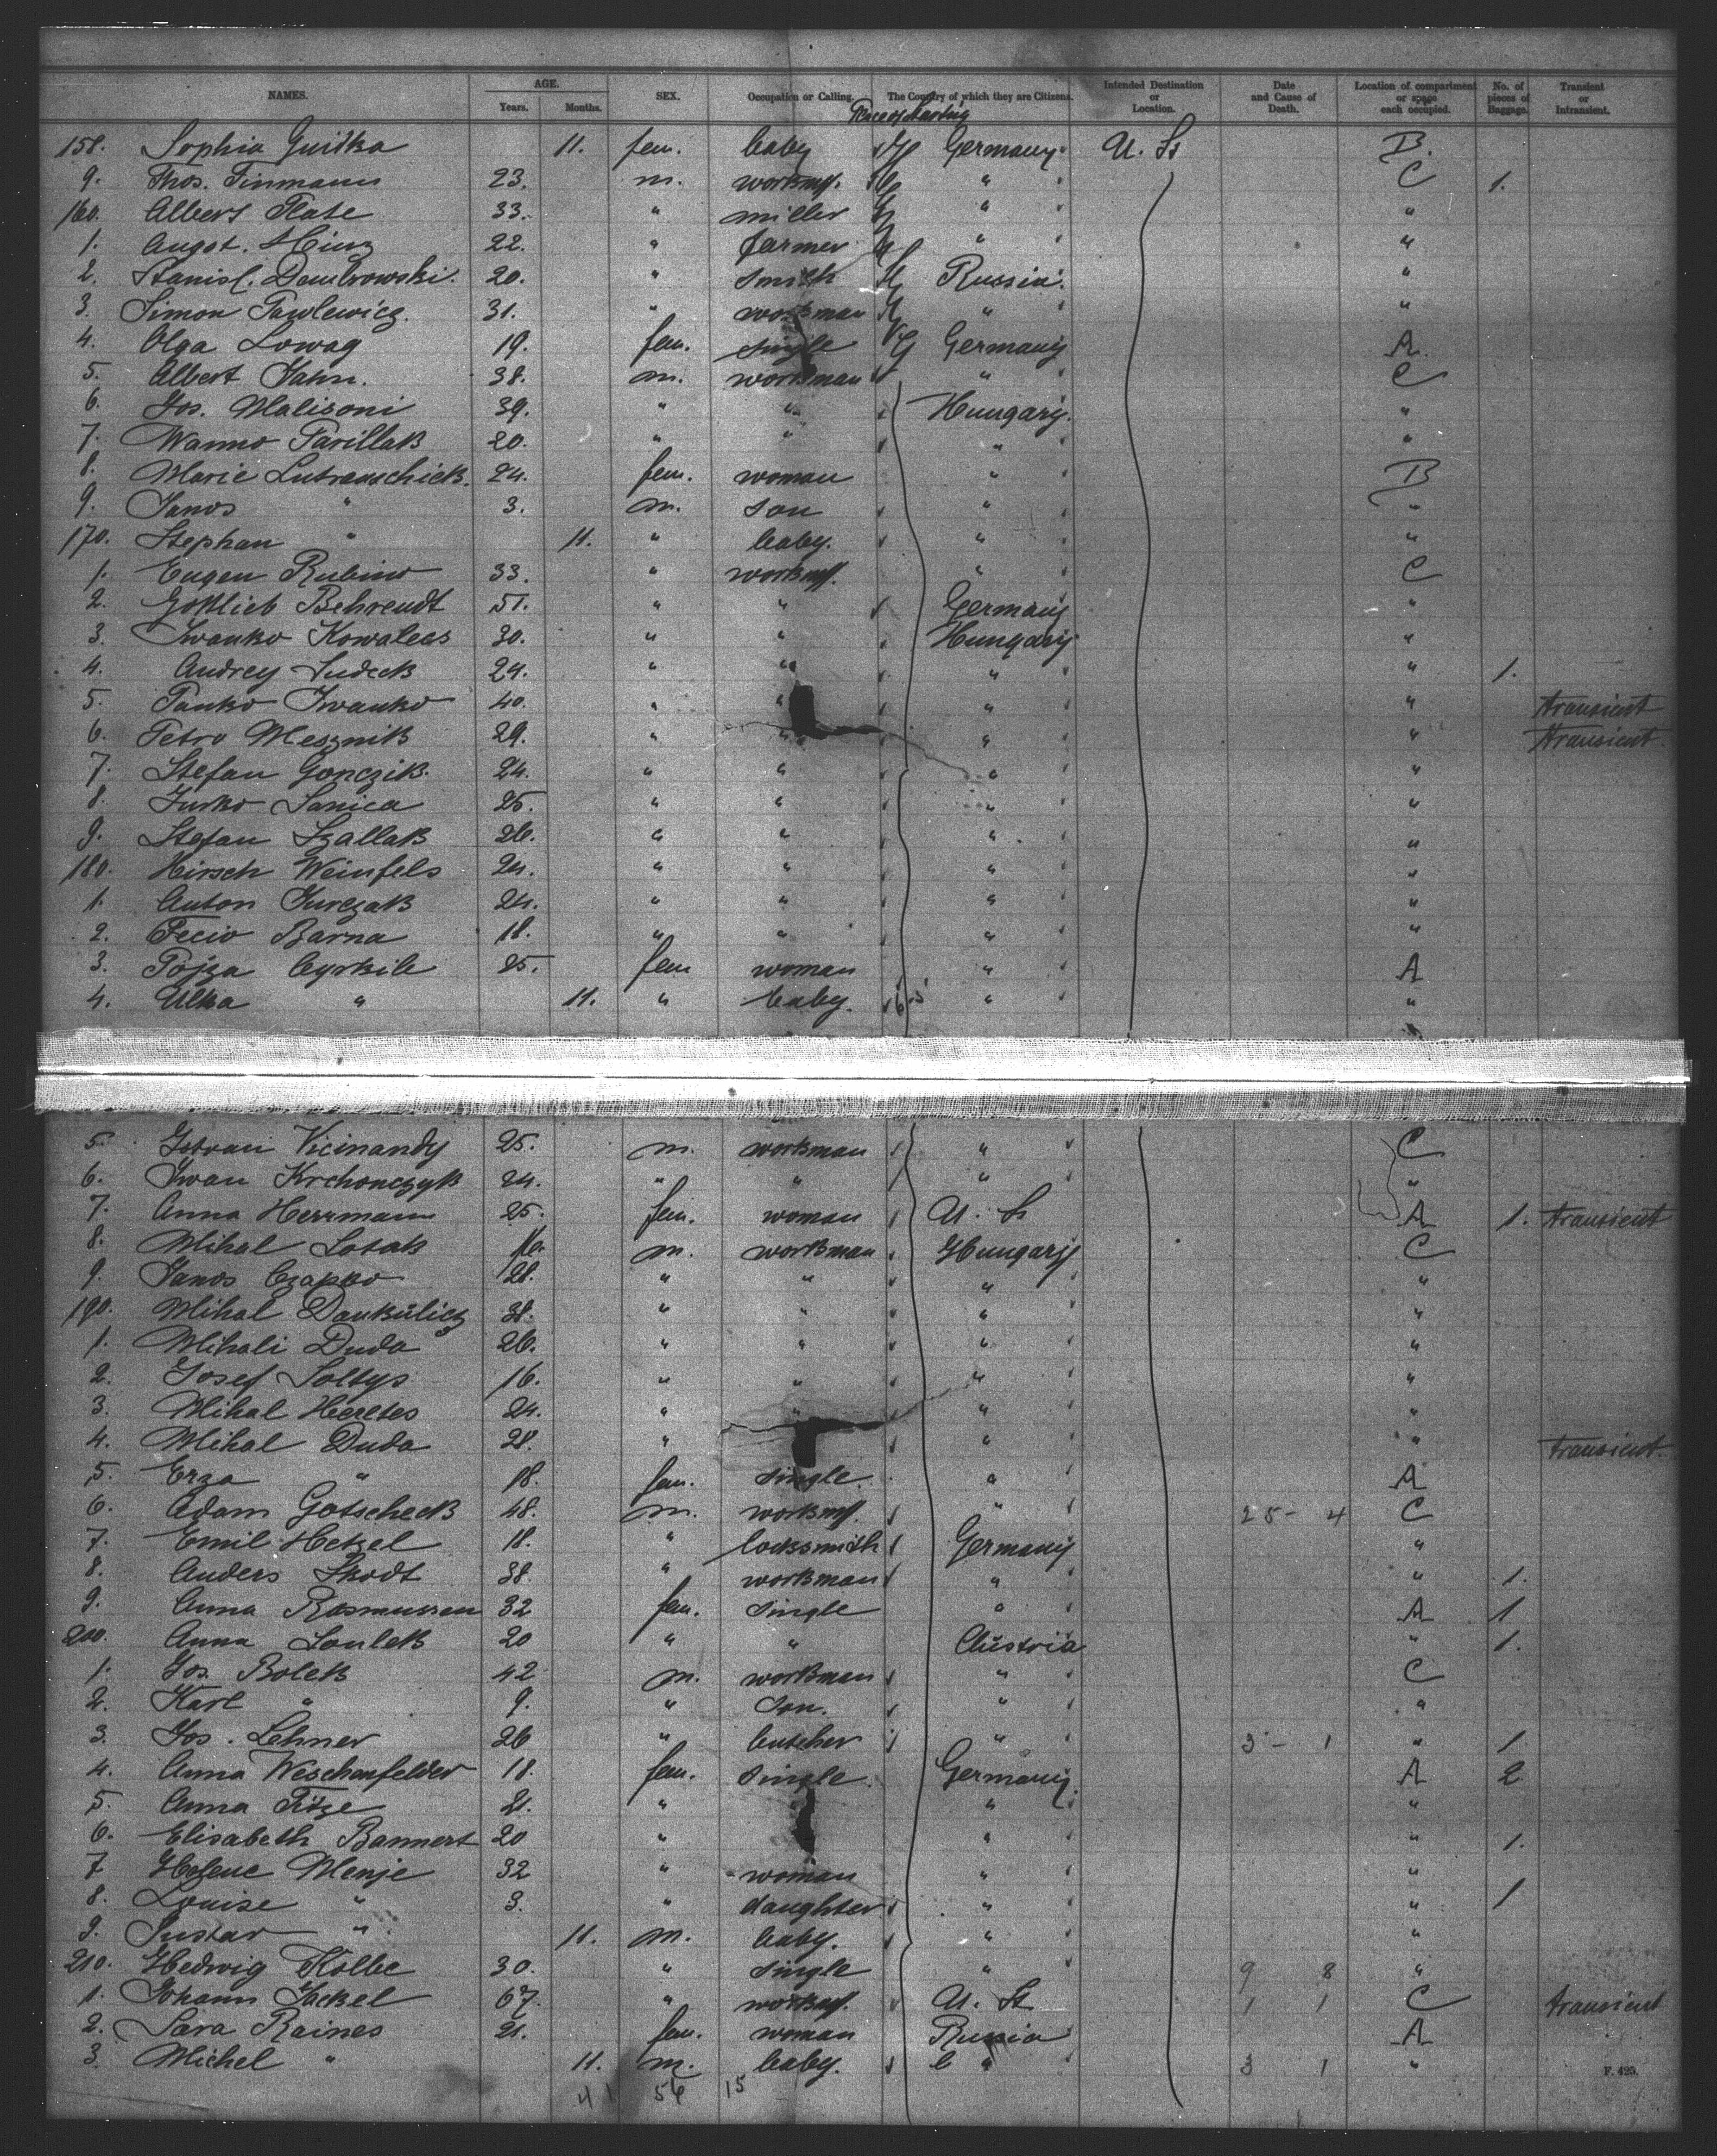 NAMES. AGE. Years. Months. SEX. Occupation or Calling. The Country of which they are Citizens. Intended Destination or Location. Date and Cause of Death. Location of compartment or space each occupied. No. of pieces of Baggage. Transient or Intransient.
158. Sophia 11. fem. baby Germany U. St B.
9. Thos. Finmann 23. m. workm. " C 1.
160. Albert Plate 33. " miller " "
1. August. Hinz 22. " farmer " "
2. Stanisl. Dombrowski. 20. " smith Russia. "
3. Simon Pawlewicz. 31. " workman " "
4. Olga Lowag 19. fem. single Germany A.
5. Albert Jahn. 38. m. workman " C
6. Jos. Malisoni 39. " " Hungary. "
7. Wanno Pavillak 20. " " " "
8. Marie Lutranschick. 24. fem. woman " B
9. Janos " 3. m. son " "
170. Stephan " 11. " baby. " "
1. Eugen Rubino 33. " workm. " C
2. Gottlieb Behrendt 51. " " Germany "
3. Iwanko Kowalecs 30. " " Hungary "
4. Andrey Sudeck 24. " " " " 1.
5. Panko Iwanko 40. " " " " transient
6. Petro Mesznik 29. " " " " transient
7. Stefan Gonczik. 24. " " " "
8. Jurko Sanica 25. " " " "
9. Stefan Szallak 26. " " " "
180. Hirsch Weinfels 24. " " " "
1. Anton Jurczak 24. " " " "
2. Fecio Barna 18. " " " "
3. Pojza Cyrkile 25. fem woman " A
4. Ulka " 11. " baby. " "
5. Istvan Vicinandy 25. m. workman " C
6. Iwan Krchonczyk 24. " " " "
7. Anna Herrmann 25. fem. woman U. St A 1. transient
8. Mihal Lotak 16. m. workman Hungary C
9. Janos Czapko 28. " " " "
190. Mihal Dankulicz 38. " " " "
1. Mihali Duda 26. " " " "
2. Josef Soltys 16. " " " "
3. Mihal Heretes 24. " " " "
4. Mihal Duda 28. " " " " transient
5. Erza " 18. fem. single. " A
6. Adam Gotscheck 48. m. workm. " 25 - 4 C
7. Emil Hetzel 18. " locksmith Germany "
8. Anders Skodt 38. " workman " " 1.
9. Anna Rasmussen 32 fem. single " A 1
200. Anna Soulek 20 " " Austria " 1.
1. Jos. Bolek 42 m. workman " C
2. Karl " 9. " son. " "
3. Jos. Lehner 26 " butcher " 3 - 1 " 1.
4. Anna Weschenfelder 18. fem. single. Germany. A 2
5. Anna Titze 21. " " "
6. Elisabeth Bannert 20 " " " 1.
7 Helene Menje 32 " woman " "
8. Louise " 3. " daughter " " 1
9. Gustav " 11. m. baby. " "
210. Hedwig Kolbe 30. " single " 9 8 "
1. Johann Jackel 67. " workm. U. St 1 1 C transient
2. Sara Raines 21. fem. woman Russia A
3. Michel " 11. m. baby. " 3 1 "
F. 425.
41 56 15